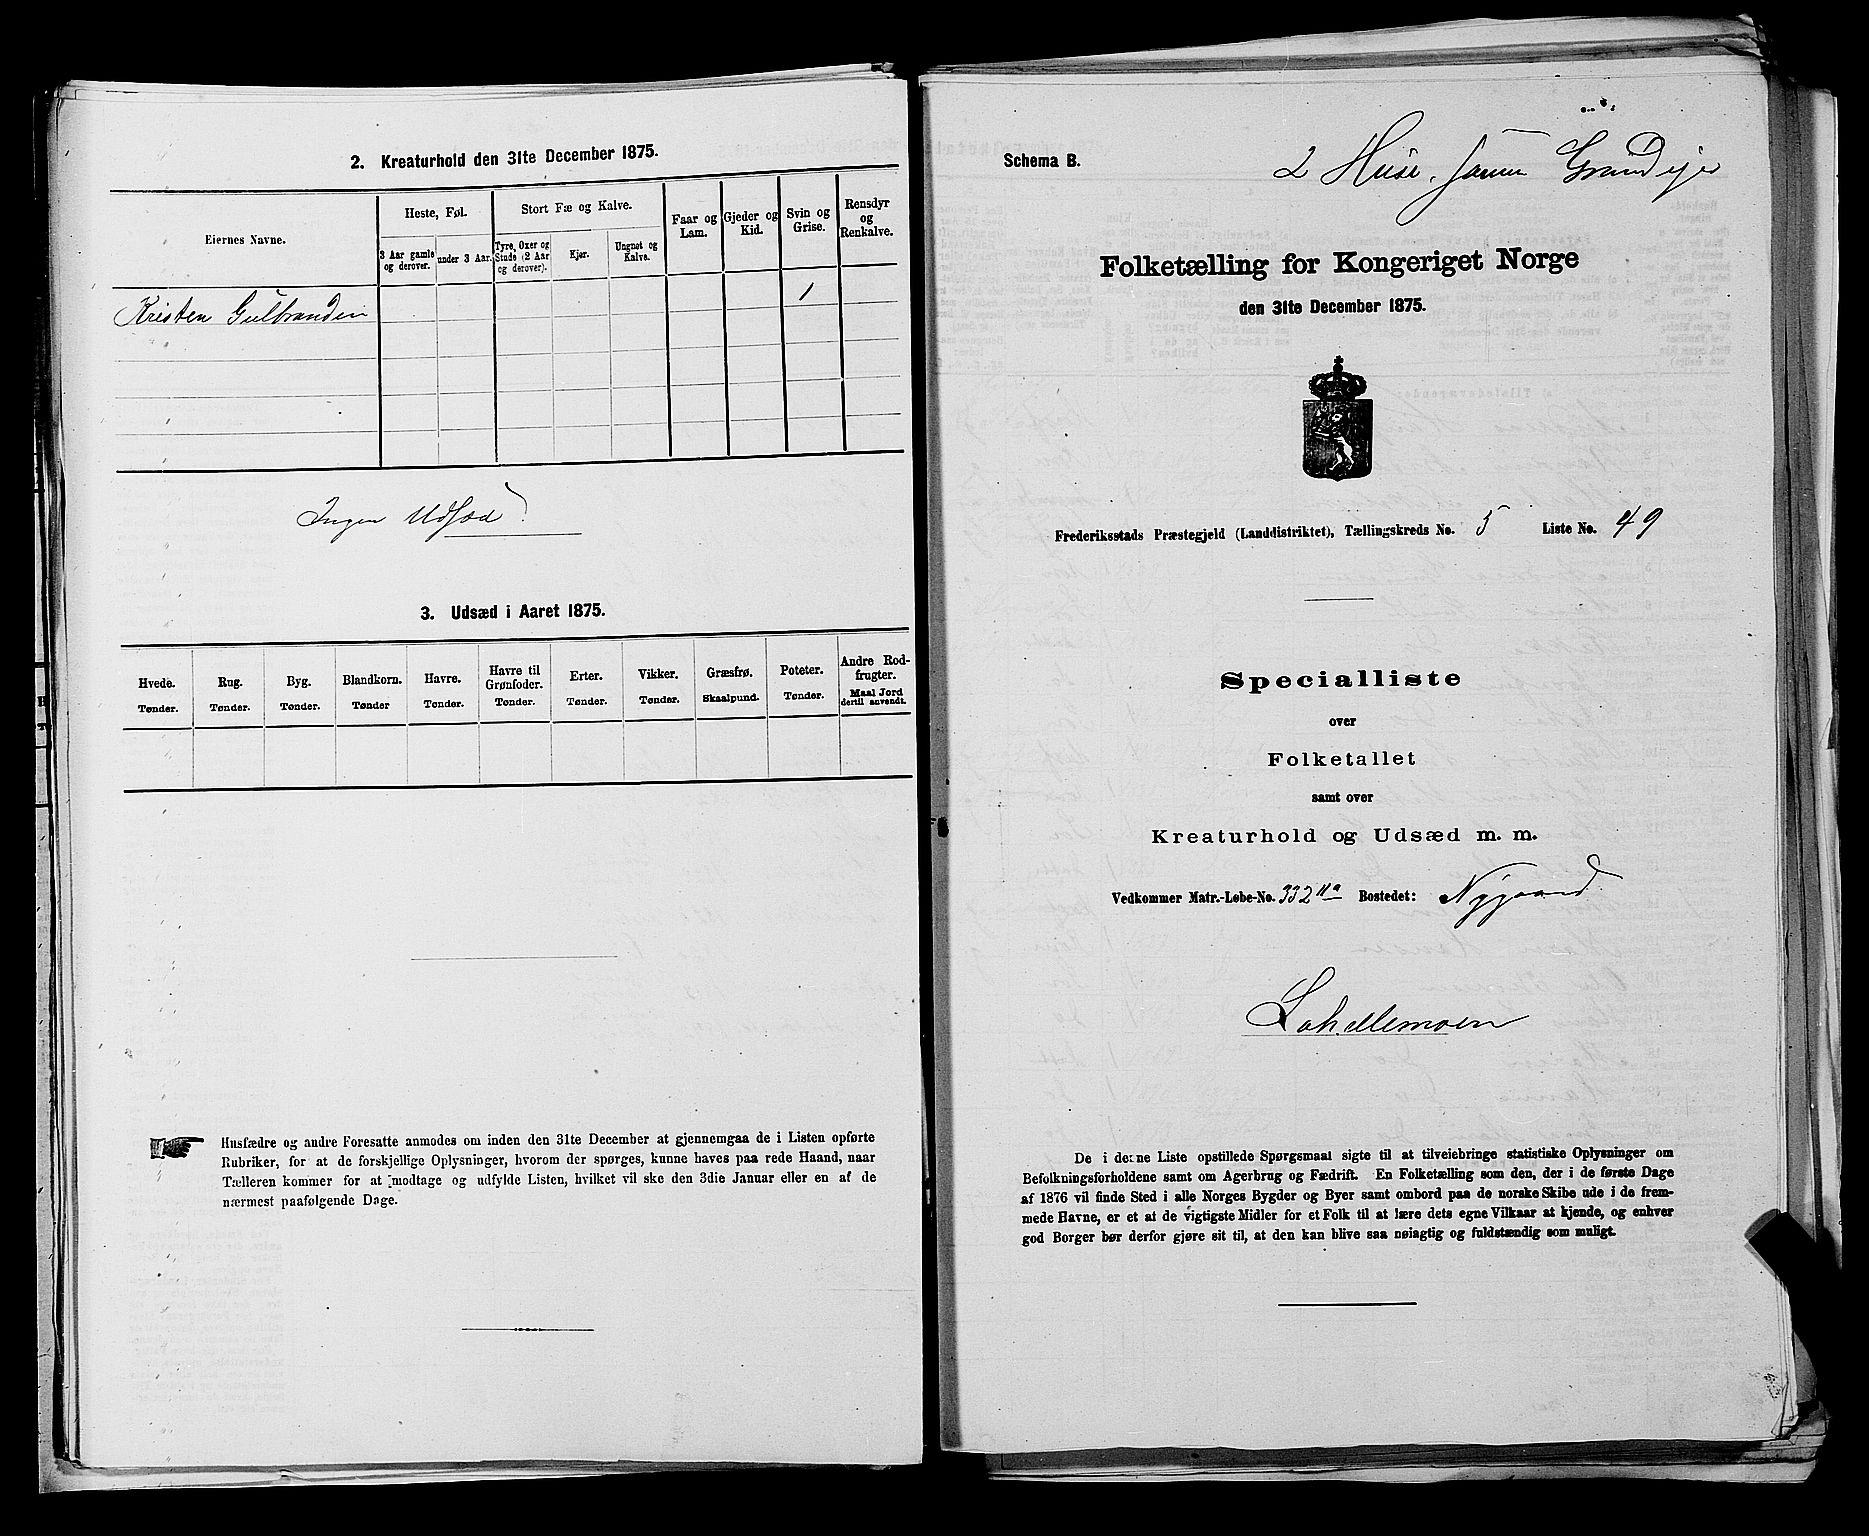 2. Kreaturhold den 31te December 1875.
Eiernes Navne.
Heste, Føl.
3 Aar gamle og derover.
under 3 Aar.
Stort Fæ og Kalve.
Tyre, Oxer og Stude (2 Aar og derover).
Kjør.
Ungnøt og Kalve.
Faar og Lam.
Gjeder og Kid.
Svin og Grise.
Rensdyr og Renkalve.
Kristen Gulbrandsen 1
Ingen Udsæd.
3. Udsæd i Aaret 1875.
Hvede. Tønder.
Rug. Tønder.
Byg. Tønder.
Blandkorn. Tønder
Havre. Tønder.
Havre til Grønfoder. Tønder.
Erter. Tønder.
Vikker. Tønder.
Græsfrø. Skaalpund.
Poteter. Tønder.
Andre Rodfrugter. Maal Jord dertil anvendt.
Husfædre og andre Foresatte anmodes om inden den 31te December at gjennemgaa de i Listen opførte
Rubriker, for at de forskjellige Oplysninger, hvorom der spørges, kunne haves paa rede Haand, naar
Tælleren kommer for at modtage og udfylde Listen, hvilket vil ske den 3die Januar eller en af de
nærmest paafølgende Dage.
Schema B.
2 Huse, samme Grundejer
Folketælling for Kongeriget Norge
den 31te December 1875.
Frederiksstads Præstegjeld (Landdistriktet), Tællingskreds No. 5 Liste No. 49
Specialliste
over
Folketallet
samt over
Kreaturhold og Udsæd m. m.
Vedkommer Matr.-Løbe-No. 332 11a Bostedet: Nygaard
Lahellemoen
De i denne Liste opstillede Spørgsmaal sigte til at tilveiebringe statistiske Oplysninger om
Befolkningsforholdene samt om Agerbrug og Fædrift. En Folketælling som den, der i de første Dage
af 1876 vil finde Sted i alle Norges Bygder og Byer samt ombord paa de norske Skibe ude i de frem-
mede Havne, er et at de vigtigste Midler for et Folk til at lære dets egne Vilkaar at kjende, og enhver
god Borger bør derfor gjøre sit til, at den kan blive saa nøiagtig og fuldstændig som muligt.